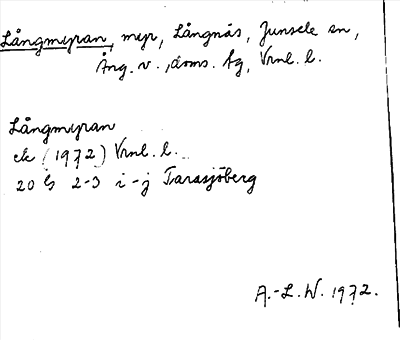 Långmyran, myr, Långnäs, Junsele sn,
Ång. v., doms. fg, Vrnl. l.
Långmyran
ek (1972) Vrnl. l.
20 G 2-3 i-j Tarasjöberg
A.-L. W. 1972.